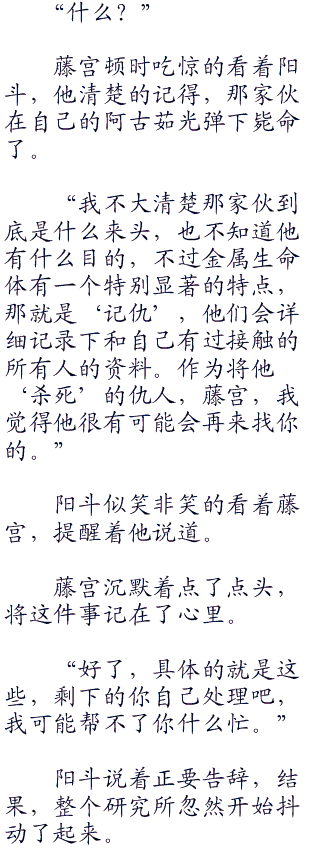 “什么？”
藤宫顿时吃惊的看着阳
斗，他清楚的记得，那家伙
在自己的阿古茹光弹下毙命
了。
“我不大清楚那家伙到
底是什么来头，也不知道他
有什么目的，不过金属生命
体有一个特别显著的特点，
那就是‘记仇’，他们会详
细记录下和自己有过接触的
所有人的资料。作为将他
‘杀死’的仇人，藤宫，我
觉得他很有可能会再来找你
的。”
阳斗似笑非笑的看着藤
宫，提醒着他说道。
藤宫沉默着点了点头，
将这件事记在了心里。
“好了，具体的就是这
些，剩下的你自己处理吧，
我可能帮不了你什么忙。”
阳斗说着正要告辞，结
果，整个研究所忽然开始抖
动了起来。